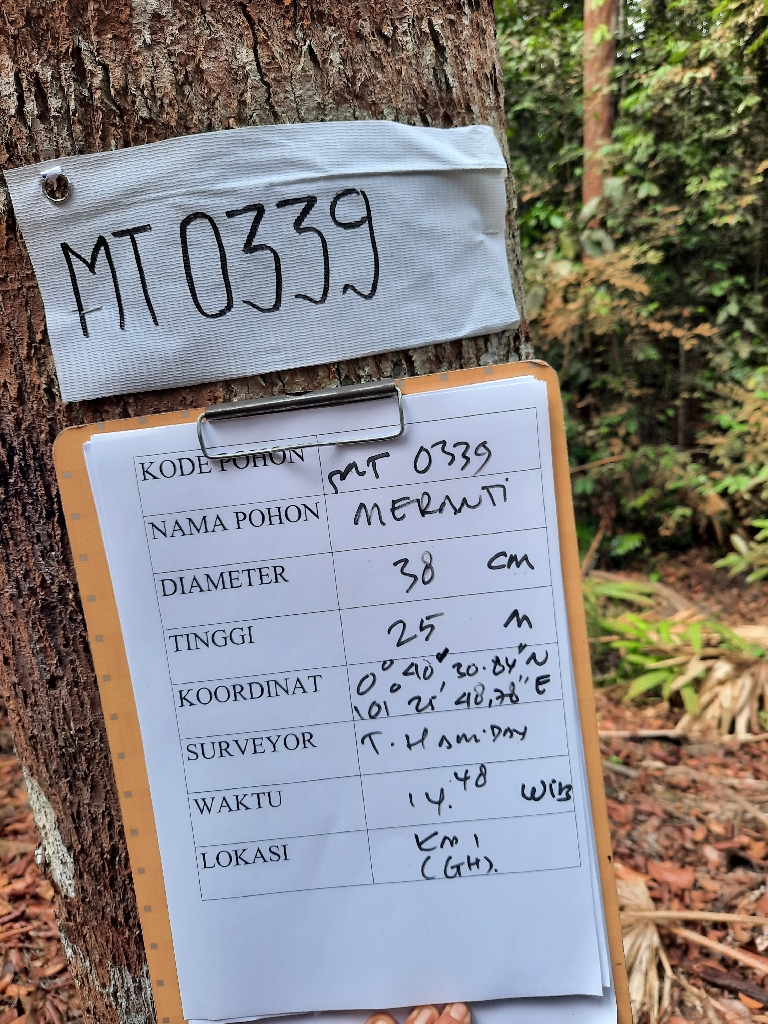 MT 0339
KODE POHON MT 0339
NAMA POHON MERANTI
DIAMETER 38 cm
TINGGI 25 m
KOORDINAT 0° 40' 30.84" N
101° 21' 48,78" E
SURVEYOR T. HAMiDAY
WAKTU 14.48 WIB
LOKASI Km 1
(GH).